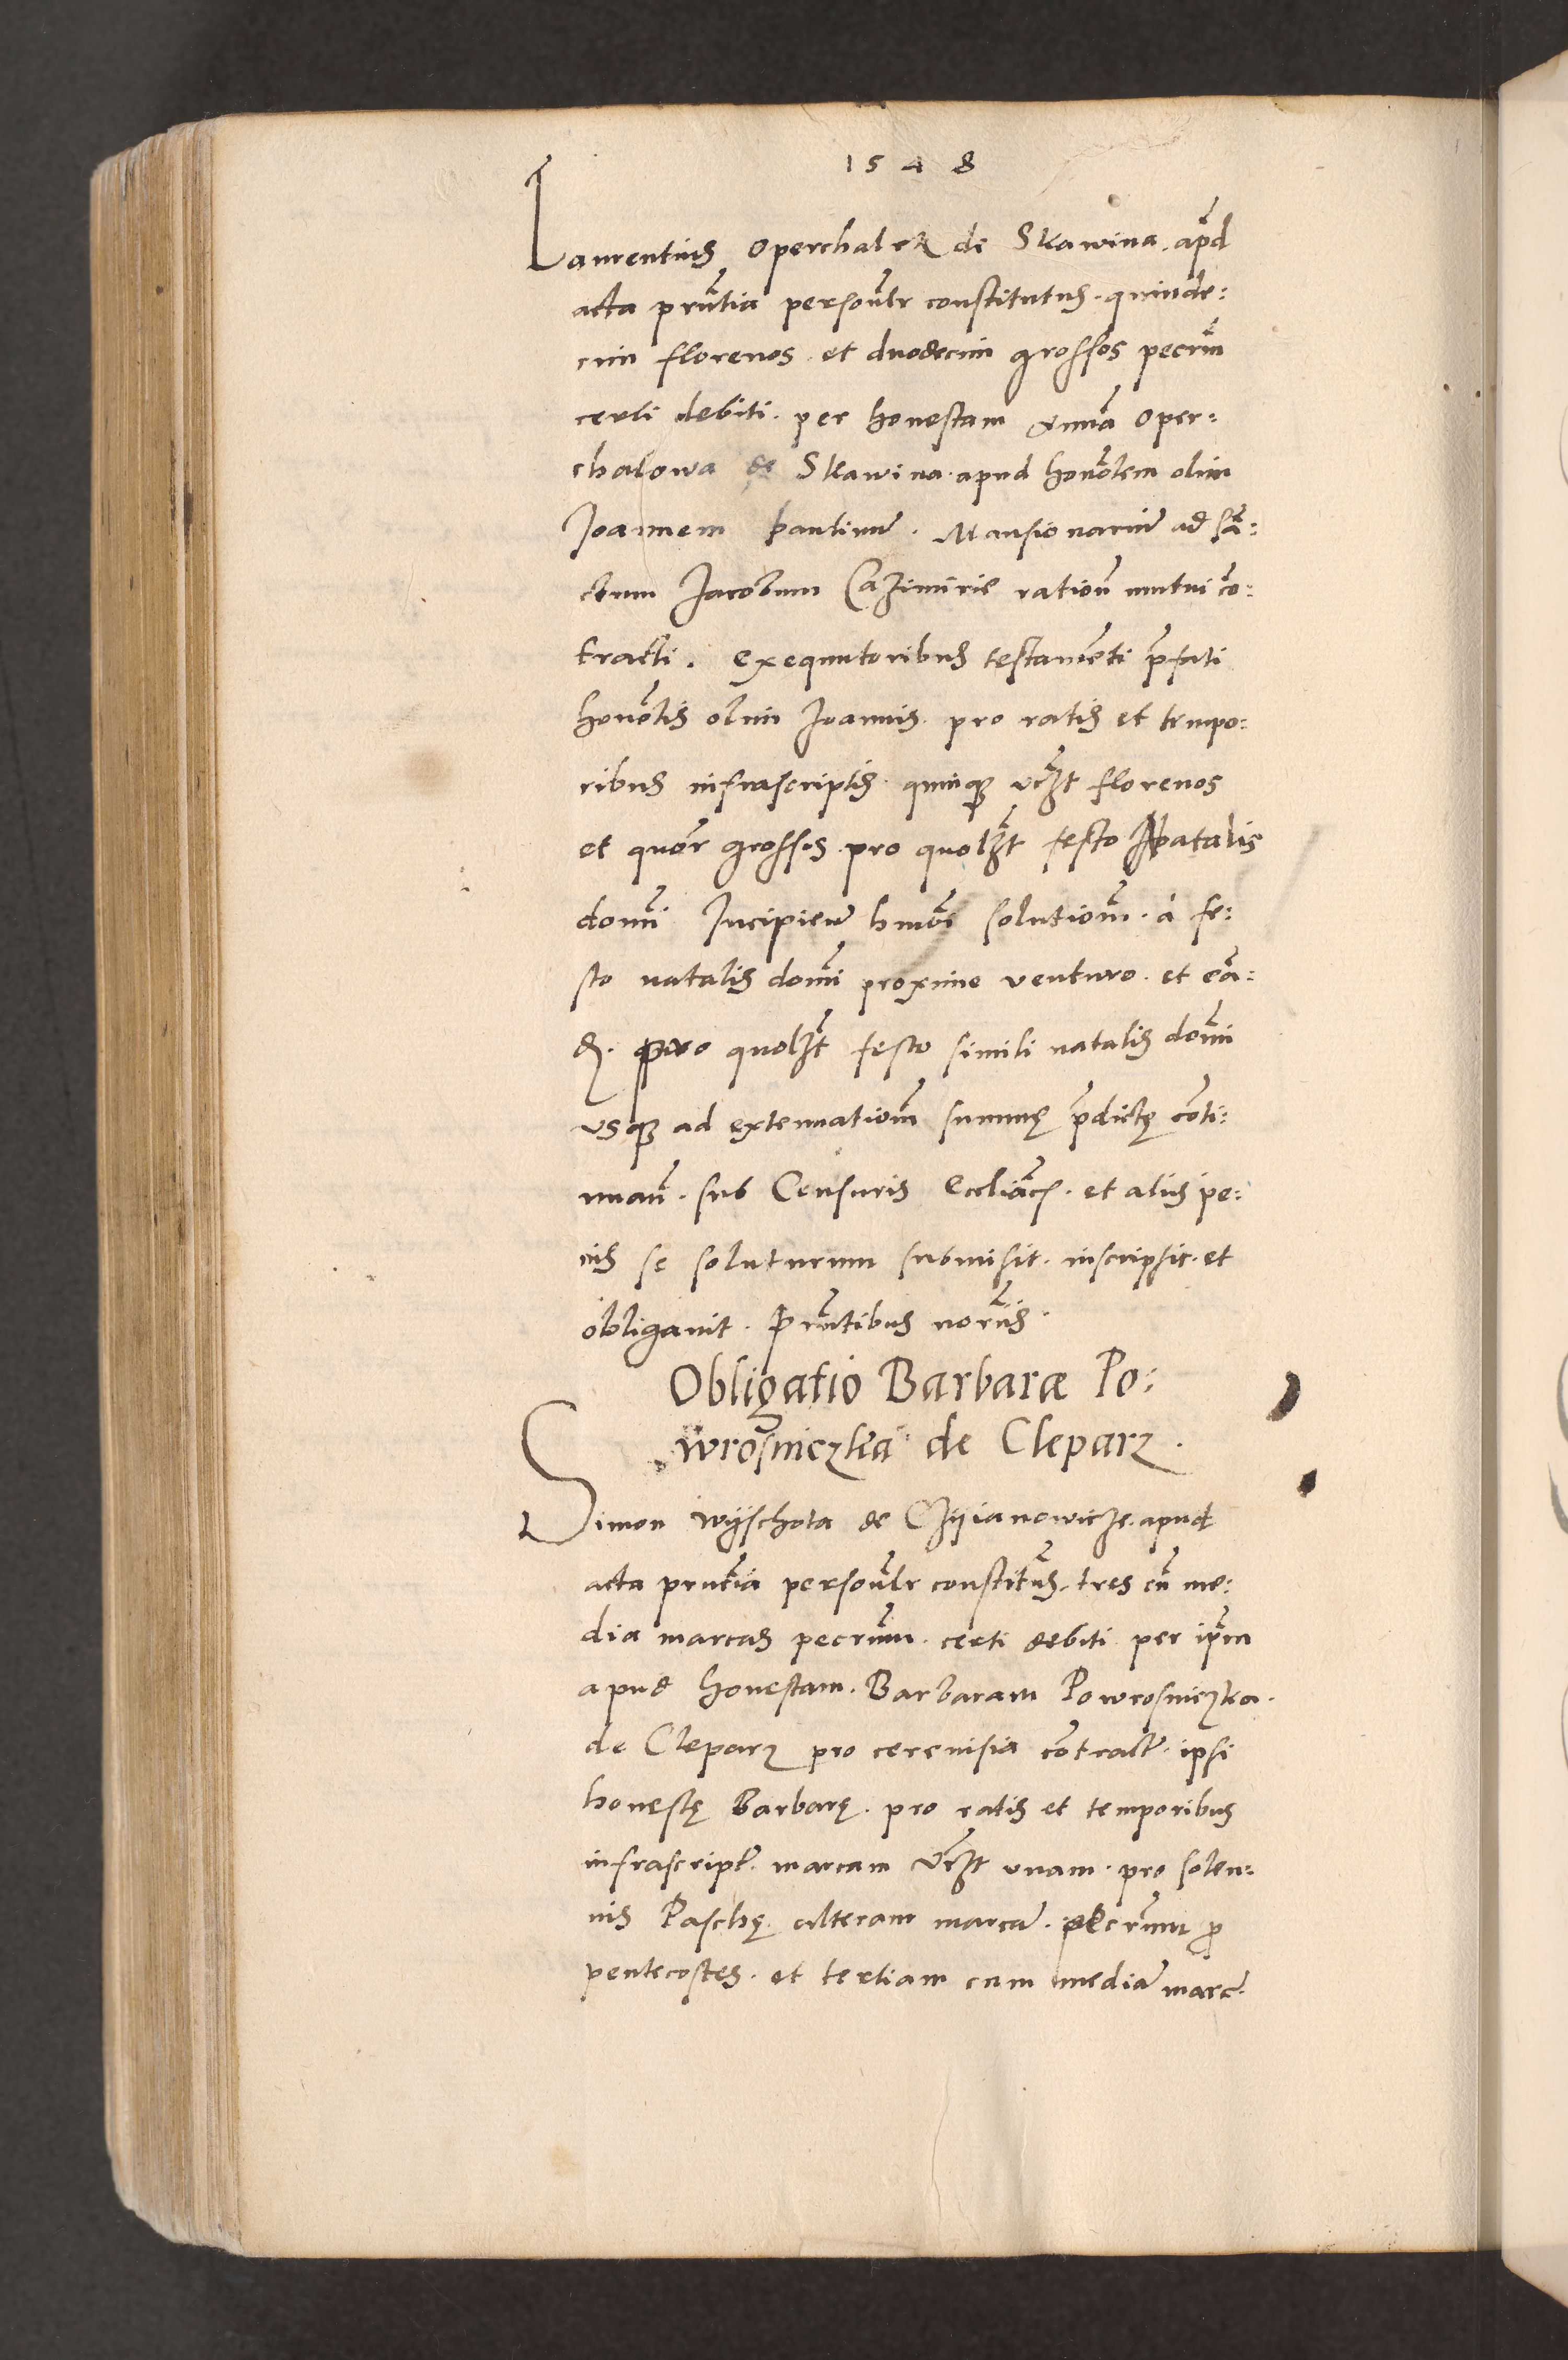 1548
Laurentius Operchalek de Skawina. apd̃
acta prñtia personlr̃ constitutus. quinde:
cim florenos. et duodecim grossos pecun̄
certi debiti. per honestam Annã Oper:
chalowa de Skawina. apud honoblem olim
Joannem paulinũ. Mansionariũ ad sã:
ctum Jacobum Cazimirie ration̄ mutui cõ:
tracti. Exequutoribus testamẽti p̃fati
honoblis olim Joannis. pro ratis et tempo:
ribus infrascriptis. quinq3 vcz̃t florenos
et quor̃ grossos. pro quolz̃t festo Natalis
domĩ Incipien̄ hmõi solution̄m. a fe:
sto natalis domĩ proxime venturo. et eã:
d. pro quolz̃t festo simili natalis domĩ
vsq3 ad extenuation̄m summę p̃dictę cõti:
nuan̄. sub Censuris Eccliãcs. et aliis pe:
nis se soluturum submisit. inscripsit. et
obligauit. Prñtibus noriis̃.
Obligatio Barbaræ Po:
wrosniczka de Cleparz.
Simon Wyschota de Czyianowicze. apud
acta prñtia personlr̃ constitũs. tres cũ me:
dia marcas pecrũm. certi debiti per ip̃m
apud honestam. Barbaram Powrosniczka.
de Cleparz pro cereuisia cõtract̃. ipsi
honestę Barbarę. pro ratis et temporibus
infrascript̃. marcam vcz̃t vnam. pro solen:
nis Paschę. alteram marcã. pecrũm p̱
pentecostes. et tertiam cum mediã marc̃.